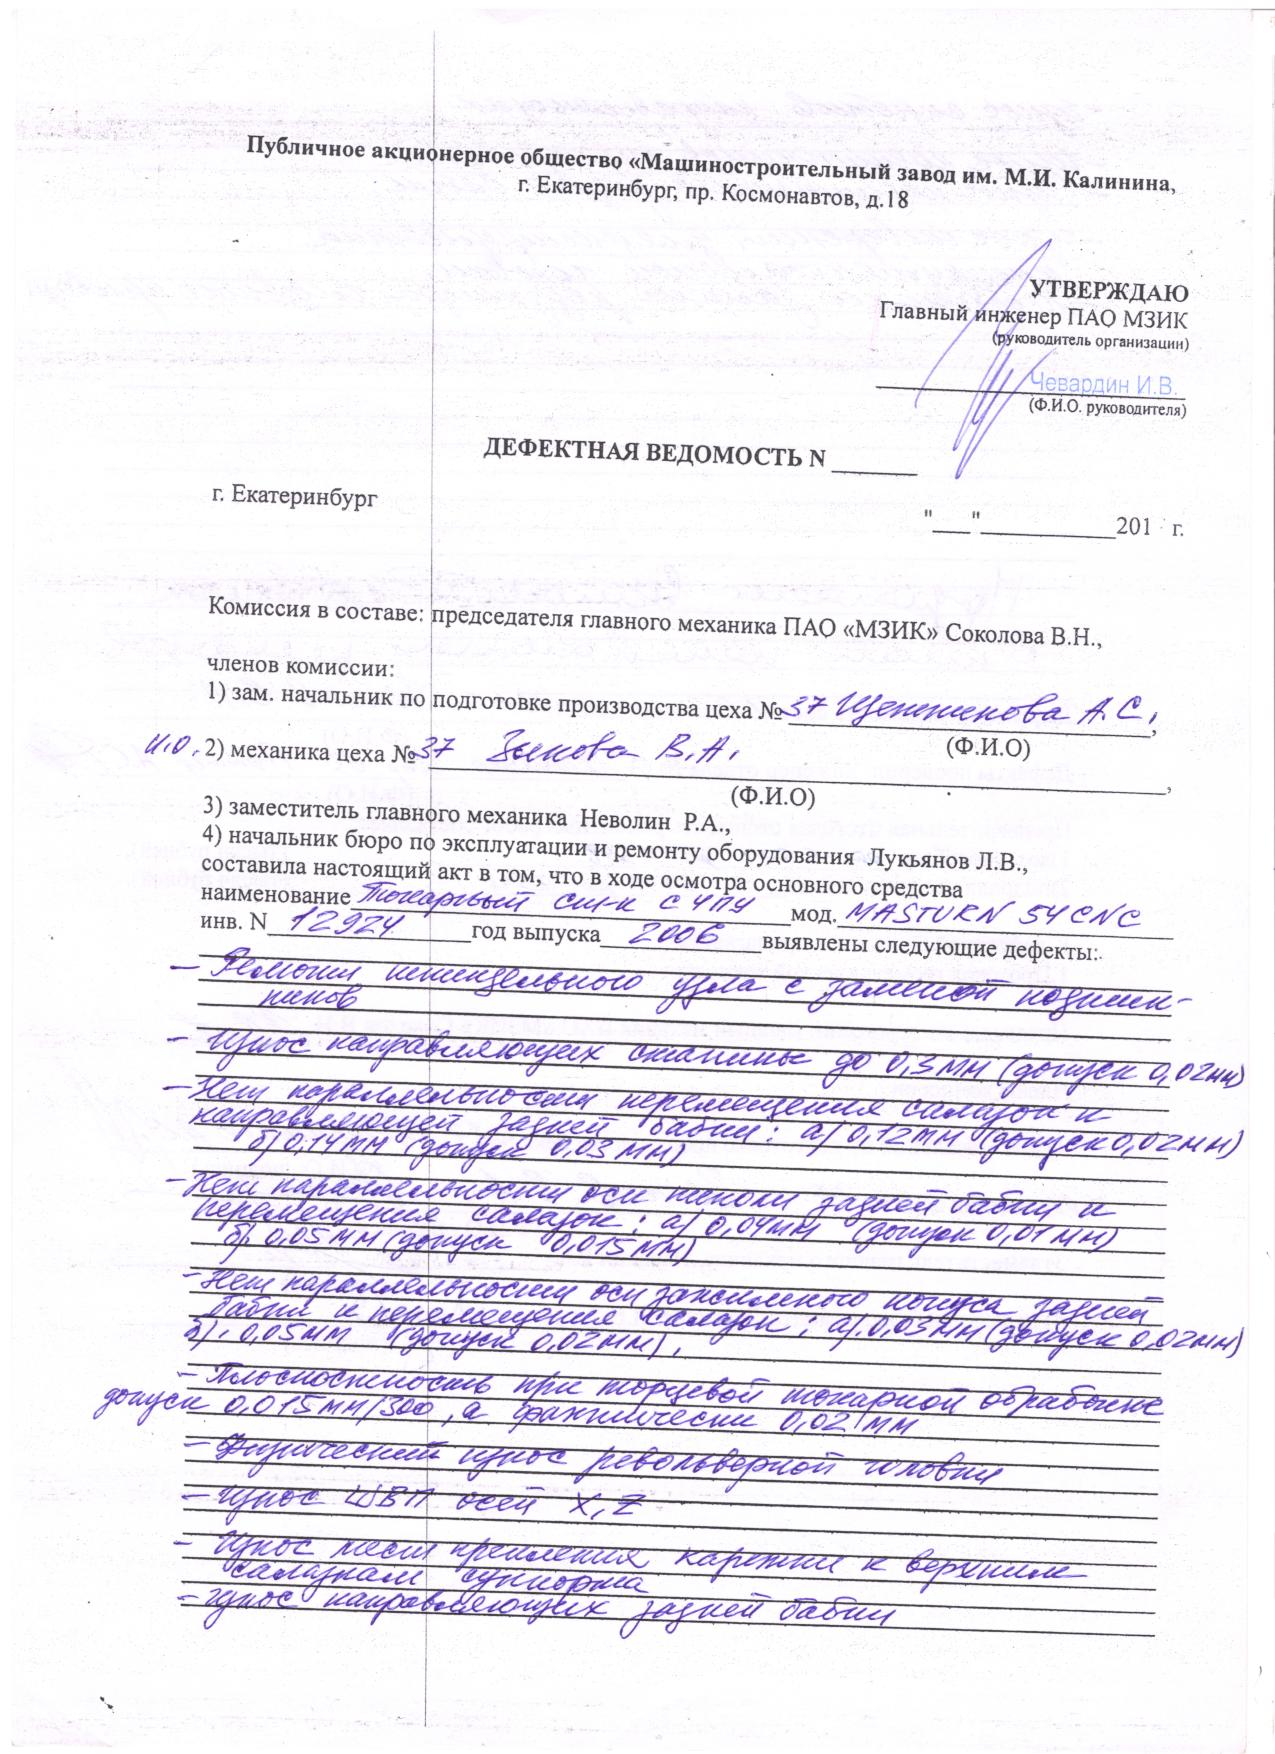 Публичное акционерное общество «Машиностроительный завод им. М.И. Калинина,
г. Екатеринбург, пр. Космонавтов, д.18
УТВЕРЖДАЮ
Главный инженер ПАО МЗИК
(руководитель организации)
Чевардин И.В.
(Ф.И.О. руководителя)
ДЕФЕКТНАЯ ВЕДОМОСТЬ N ______
г. Екатеринбург
"___"___________201 г.
Комиссия в составе: председателя главного механика ПАО «МЗИК» Соколова В.Н.,
членов комиссии:
1) зам. начальник по подготовке производства цеха № 37 Щетникова А.С.,
(Ф.И.О)
И.О. 2) механика цеха № 37 Зыкова В.А.,
(Ф.И.О)
3) заместитель главного механика Неволин Р.А.,
4) начальник бюро по эксплуатации и ремонту оборудования Лукьянов Л.В.,
составила настоящий акт в том, что в ходе осмотра основного средства
наименование Токарный ст-к с ЧПУ мод. MASTURN 54 CNC
инв. N 12924 год выпуска 2006 выявлены следующие дефекты:
– Ремонт шпиндельного узла с заменой подшип-
ников
– Износ направляющих станины до 0,3 мм (допуск 0,02мм)
– Нет параллельности перемещения салазок и
направляющей задней бабки: а) 0,12мм (допуск 0,02мм)
б) 0,14мм (допуск 0,03 мм)
– Нет параллельности оси пиноли задней бабки и
перемещения салазок: а) 0,04мм (допуск 0,01 мм)
б) 0,05 мм (допуск 0,015 мм)
– Нет параллельности оси зажимного конуса задней
бабки и перемещения салазок: а) 0,03мм (допуск 0,02мм)
б) 0,05мм (допуск 0,02мм).
– Плоскостность при торцевой токарной обработке
допуск 0,015мм/300, а фактически 0,02 мм
– Физический износ револьверной головки
– Износ ШВП осей X, Z
– Износ мест крепления каретки к верхним
салазкам суппорта
– Износ направляющих задней бабки